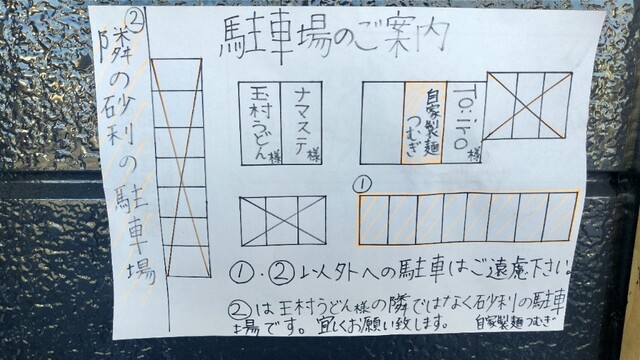 駐車場のご案内
②
隣の砂利の駐車場
玉村うどん様
ナマステ様
自家製麺
つむぎ
To:iro様
①
①・②以外への駐車はご遠慮下さい。
②は玉村うどん様の隣ではなく砂利の駐車
場です。宜しくお願い致します。 自家製麺つむぎ